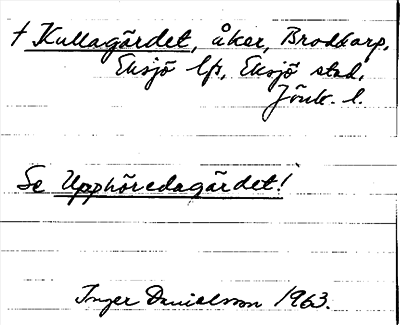 † Kullagärdet, åker, Broddarp,
Eksjö lfs, Eksjö stad,
Jönk. l.
Se Upphöredagärdet!
Inger Danielsson 1963.